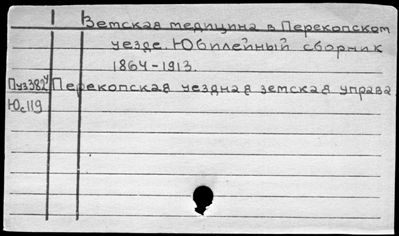 Земская медицина в Перекопском
уезде. Юбилейный сборник
1864-1913.
Пуз382ч Перекопская уездная земская управа
Юс119